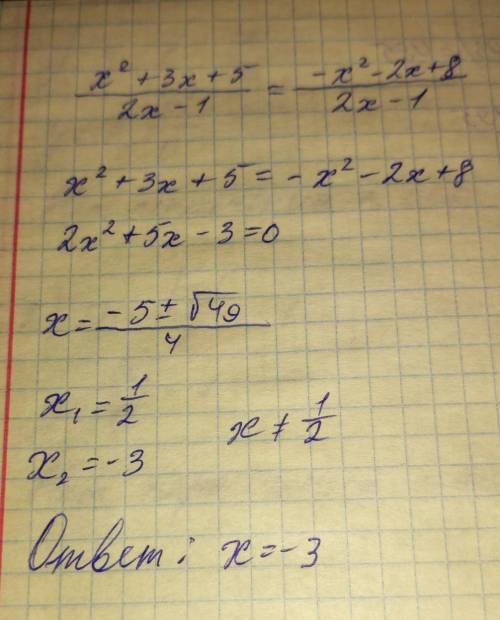 x² + 3x + 5 / 2x - 1 = -x² - 2x + 8 / 2x - 1
x² + 3x + 5 = - x² - 2x + 8
2x² + 5x - 3 = 0
x = - 5 ± √49 / 4
x₁ = 1/2
x ≠ 1/2
x₂ = - 3
Ответ: x = - 3